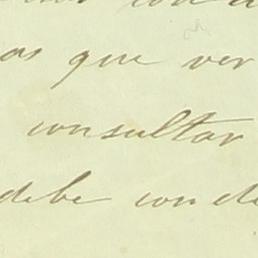 os que ver
consultar
debe conde